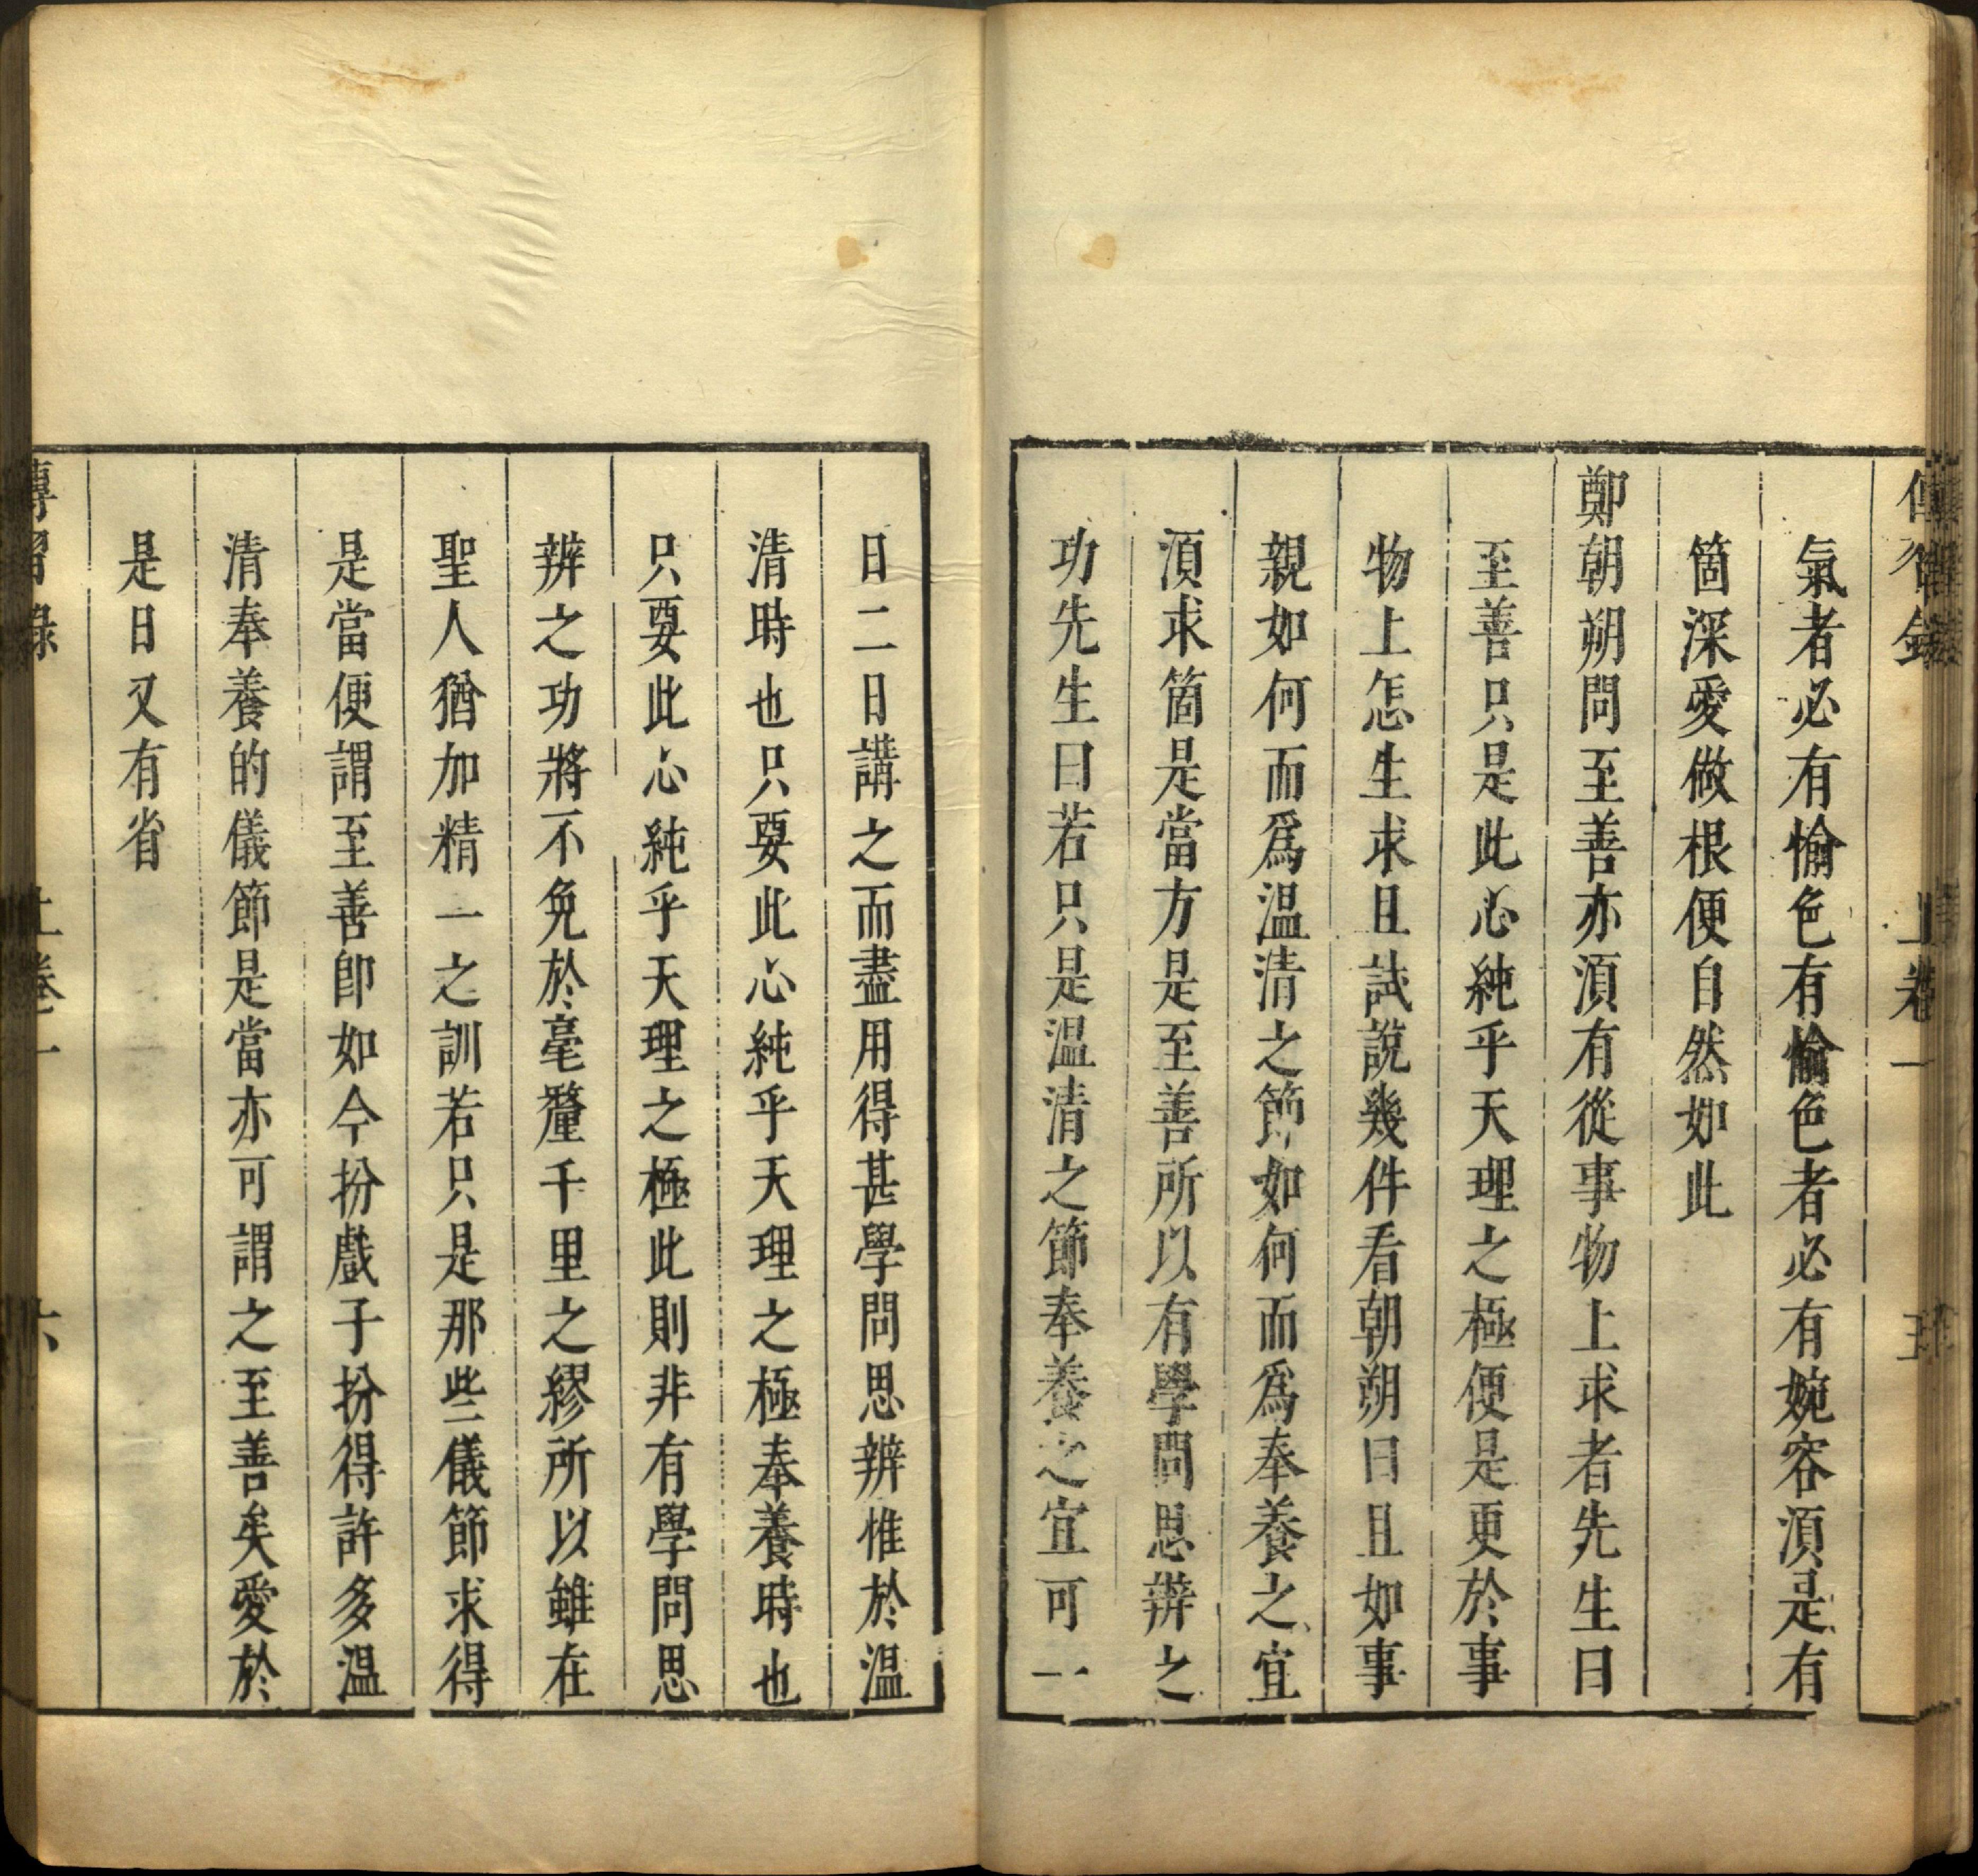 氣者必有愉色有愉色者必有婉容須是有
箇深愛做根便自然如此
鄭朝朔問至善亦須有從事物上求者先生曰
至善只是此心純乎天理之極便是更於事
物上怎生求且試說幾件看朝朔曰且如事
親如何而爲温凊之節如何而爲奉養之宜
須求箇是當方是至善所以有學問思辨之
功先生曰若只是温凊之節奉養之宜可一
日二日講之而盡用得甚學問思辨惟於温
凊時也只要此心純乎天理之極奉養時也
只要此心純乎天理之極此則非有學問思
辨之功將不免於毫釐千里之繆所以雖在
聖人猶加精一之訓若只是那些儀節求得
是當便謂至善卽如今扮戲子扮得許多温
凊奉養的儀節是當亦可謂之至善矣愛於
是日又有省
傳習錄 上卷一 六